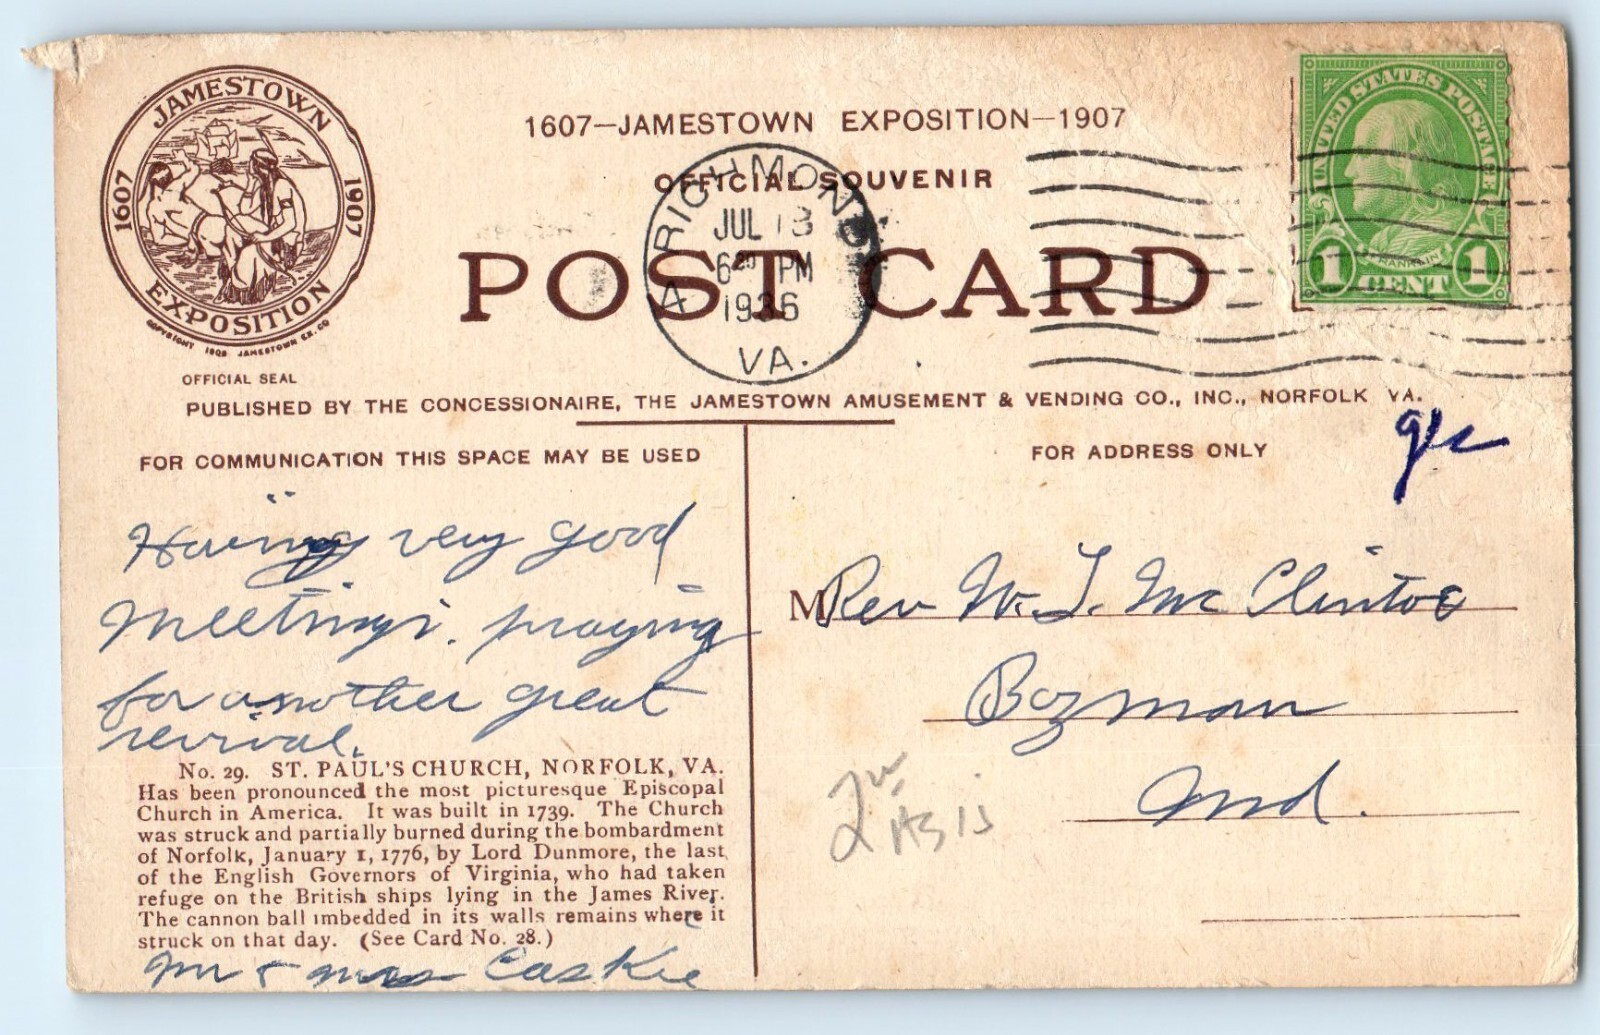 JAMESTOWN
1607 1907
EXPOSITION
COPYRIGHT 1905 JAMESTOWN EX. CO
OFFICIAL SEAL
1607—JAMESTOWN EXPOSITION—1907
OFFICIAL SOUVENIR
POST CARD
RICHMOND
JUL 13
6 PM
1936
VA.
UNITED STATES POSTAGE
FRANKLIN
1 CENT 1
PUBLISHED BY THE CONCESSIONAIRE, THE JAMESTOWN AMUSEMENT & VENDING CO., INC., NORFOLK VA.
FOR COMMUNICATION THIS SPACE MAY BE USED
FOR ADDRESS ONLY
Having very good
Meetings. praying
for another great
revival.
No. 29. ST. PAUL'S CHURCH, NORFOLK, VA.
Has been pronounced the most picturesque Episcopal
Church in America. It was built in 1739. The Church
was struck and partially burned during the bombardment
of Norfolk, January 1, 1776, by Lord Dunmore, the last
of the English Governors of Virginia, who had taken
refuge on the British ships lying in the James River.
The cannon ball imbedded in its walls remains where it
struck on that day. (See Card No. 28.)
Mr & Mrs Caskie
M Rev W. L. Mc Clintoc
Bozman
Md.
AS IS